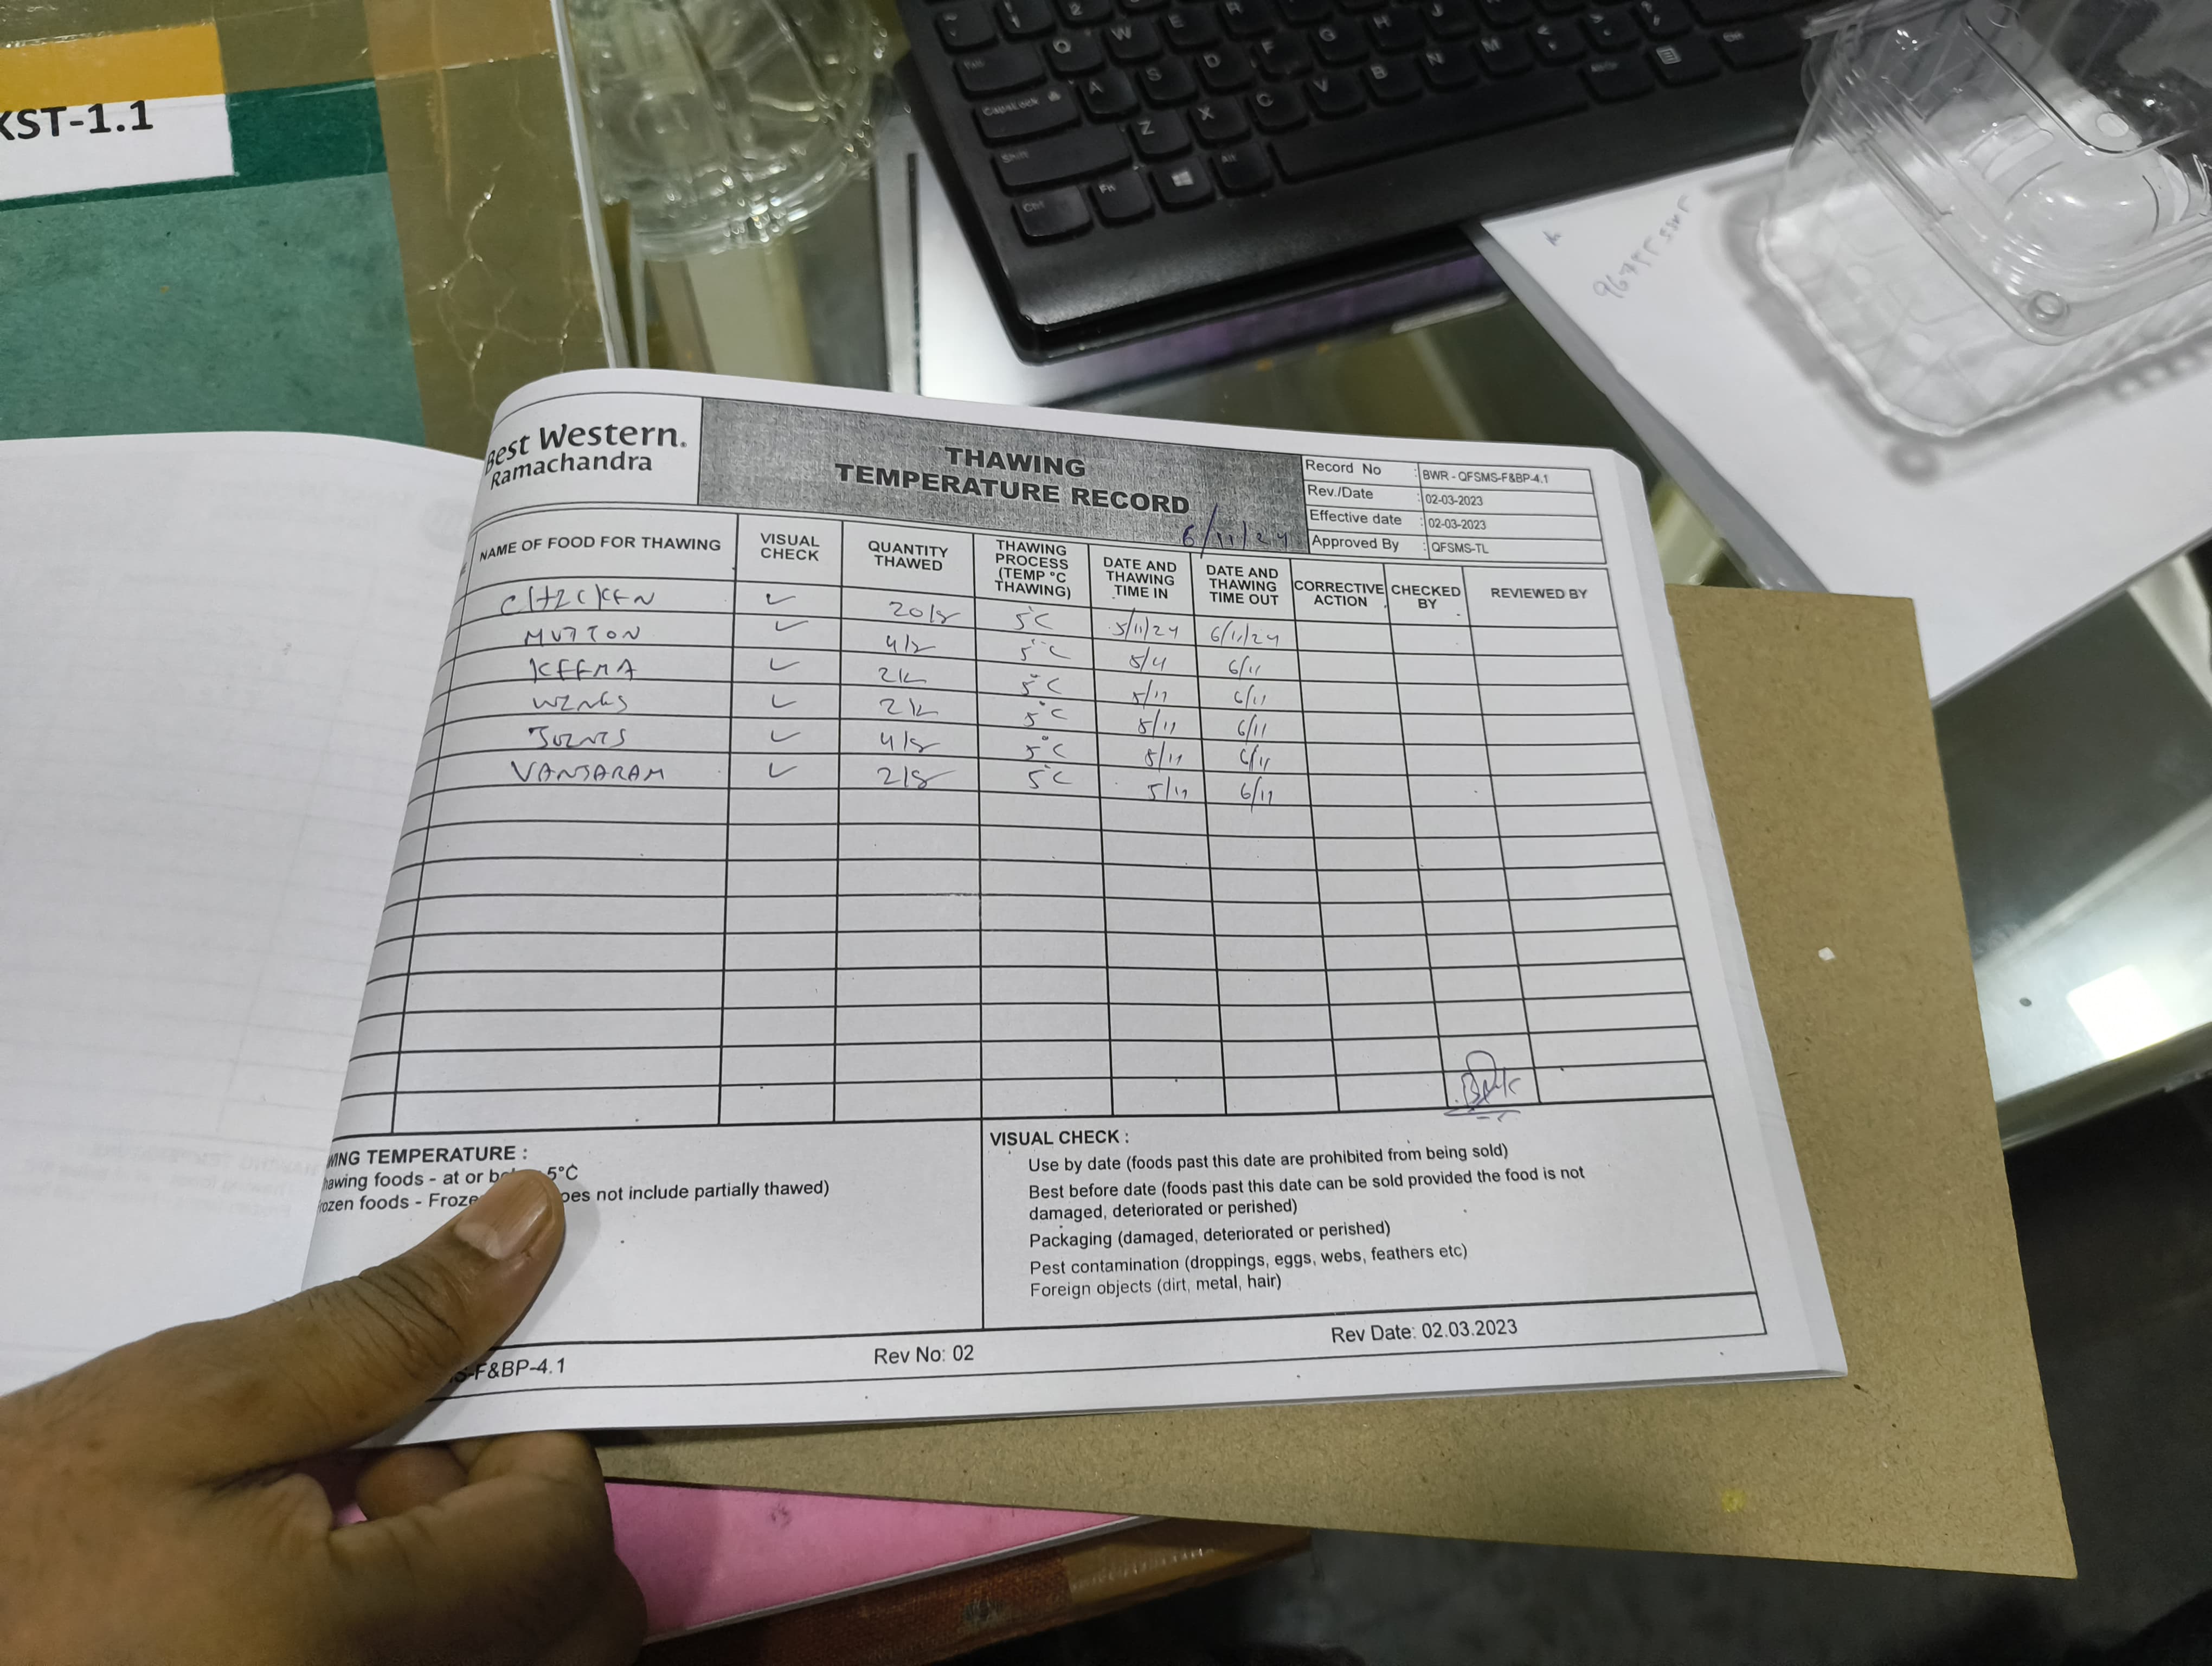 KST-1.1
CapsLock A S D F G H J
Shift Z X C V B N M
Ctrl Fn Alt
Best Western.
Ramachandra
THAWING
TEMPERATURE RECORD
6/11/24
Record No : BWR - QFSMS-F&BP-4.1
Rev./Date : 02-03-2023
Effective date : 02-03-2023
Approved By : QFSMS-TL
NAME OF FOOD FOR THAWING VISUAL CHECK QUANTITY THAWED THAWING PROCESS (TEMP °C THAWING) DATE AND THAWING TIME IN DATE AND THAWING TIME OUT CORRECTIVE ACTION CHECKED BY REVIEWED BY
CHICKEN ✓ 20 5°C 5/11/24 6/11/24
MUTTON ✓ 4 5°C 5/11 6/11
KEEMA ✓ 2k 5°C 5/11 6/11
WINGS ✓ 2k 5°C 5/11 6/11
✓ 4 5°C 5/11 6/11
VANJARAM ✓ 2 5°C 5/11 6/11
WING TEMPERATURE :
hawing foods - at or 5°C
rozen foods - Froze oes not include partially thawed)
VISUAL CHECK :
Use by date (foods past this date are prohibited from being sold)
Best before date (foods past this date can be sold provided the food is not
damaged, deteriorated or perished)
Packaging (damaged, deteriorated or perished)
Pest contamination (droppings, eggs, webs, feathers etc)
Foreign objects (dirt, metal, hair)
S-F&BP-4.1 Rev No: 02 Rev Date: 02.03.2023